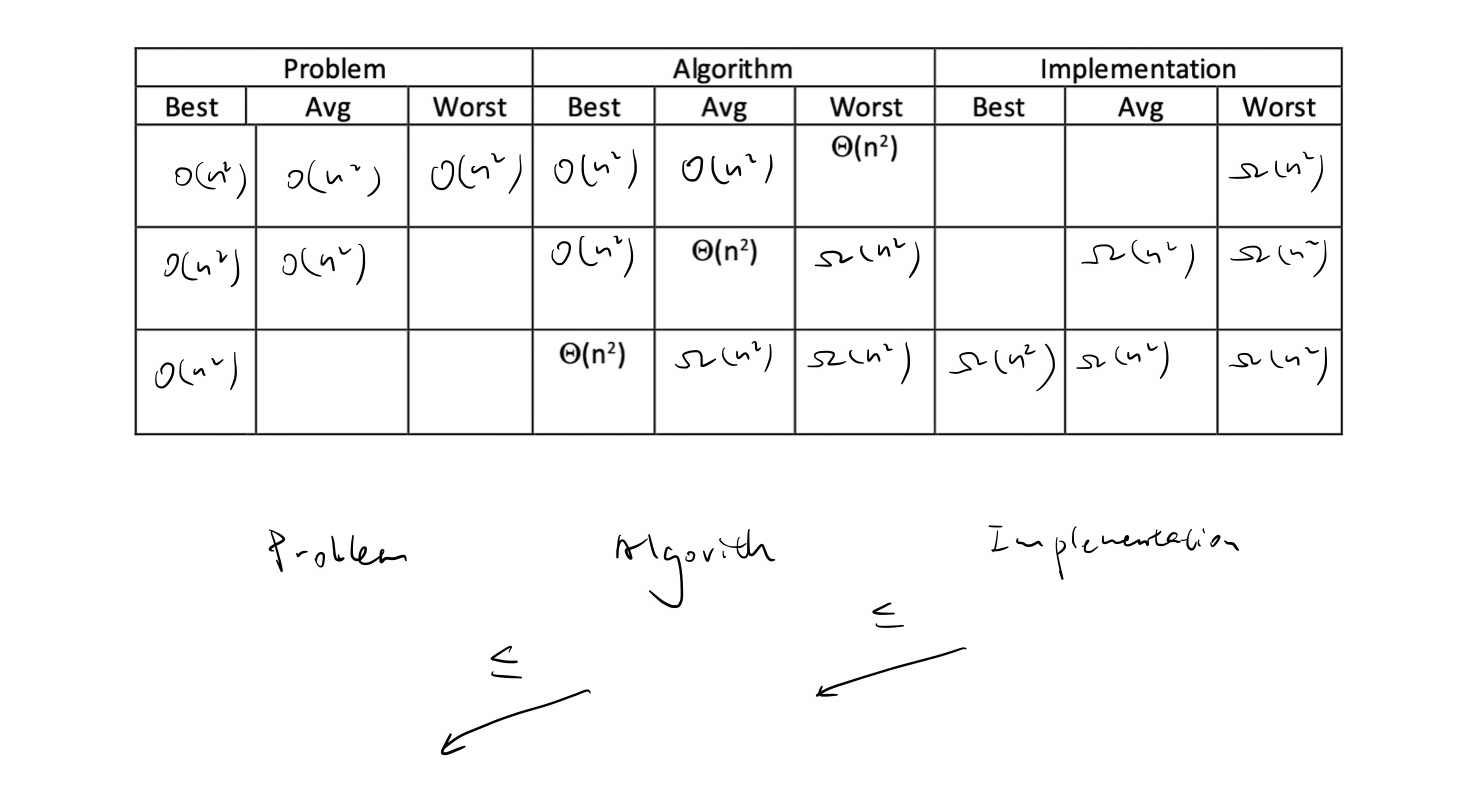 Problem Algorithm Implementation
Best Avg Worst Best Avg Worst Best Avg Worst
O(n²) O(n²) O(n²) O(n²) O(n²) Θ(n²) Ω(n²)
O(n²) O(n²) O(n²) Θ(n²) Ω(n²) Ω(n²) Ω(n²)
O(n²) Θ(n²) Ω(n²) Ω(n²) Ω(n²) Ω(n²) Ω(n²)
Problem Algorith Implementation
≤
≤